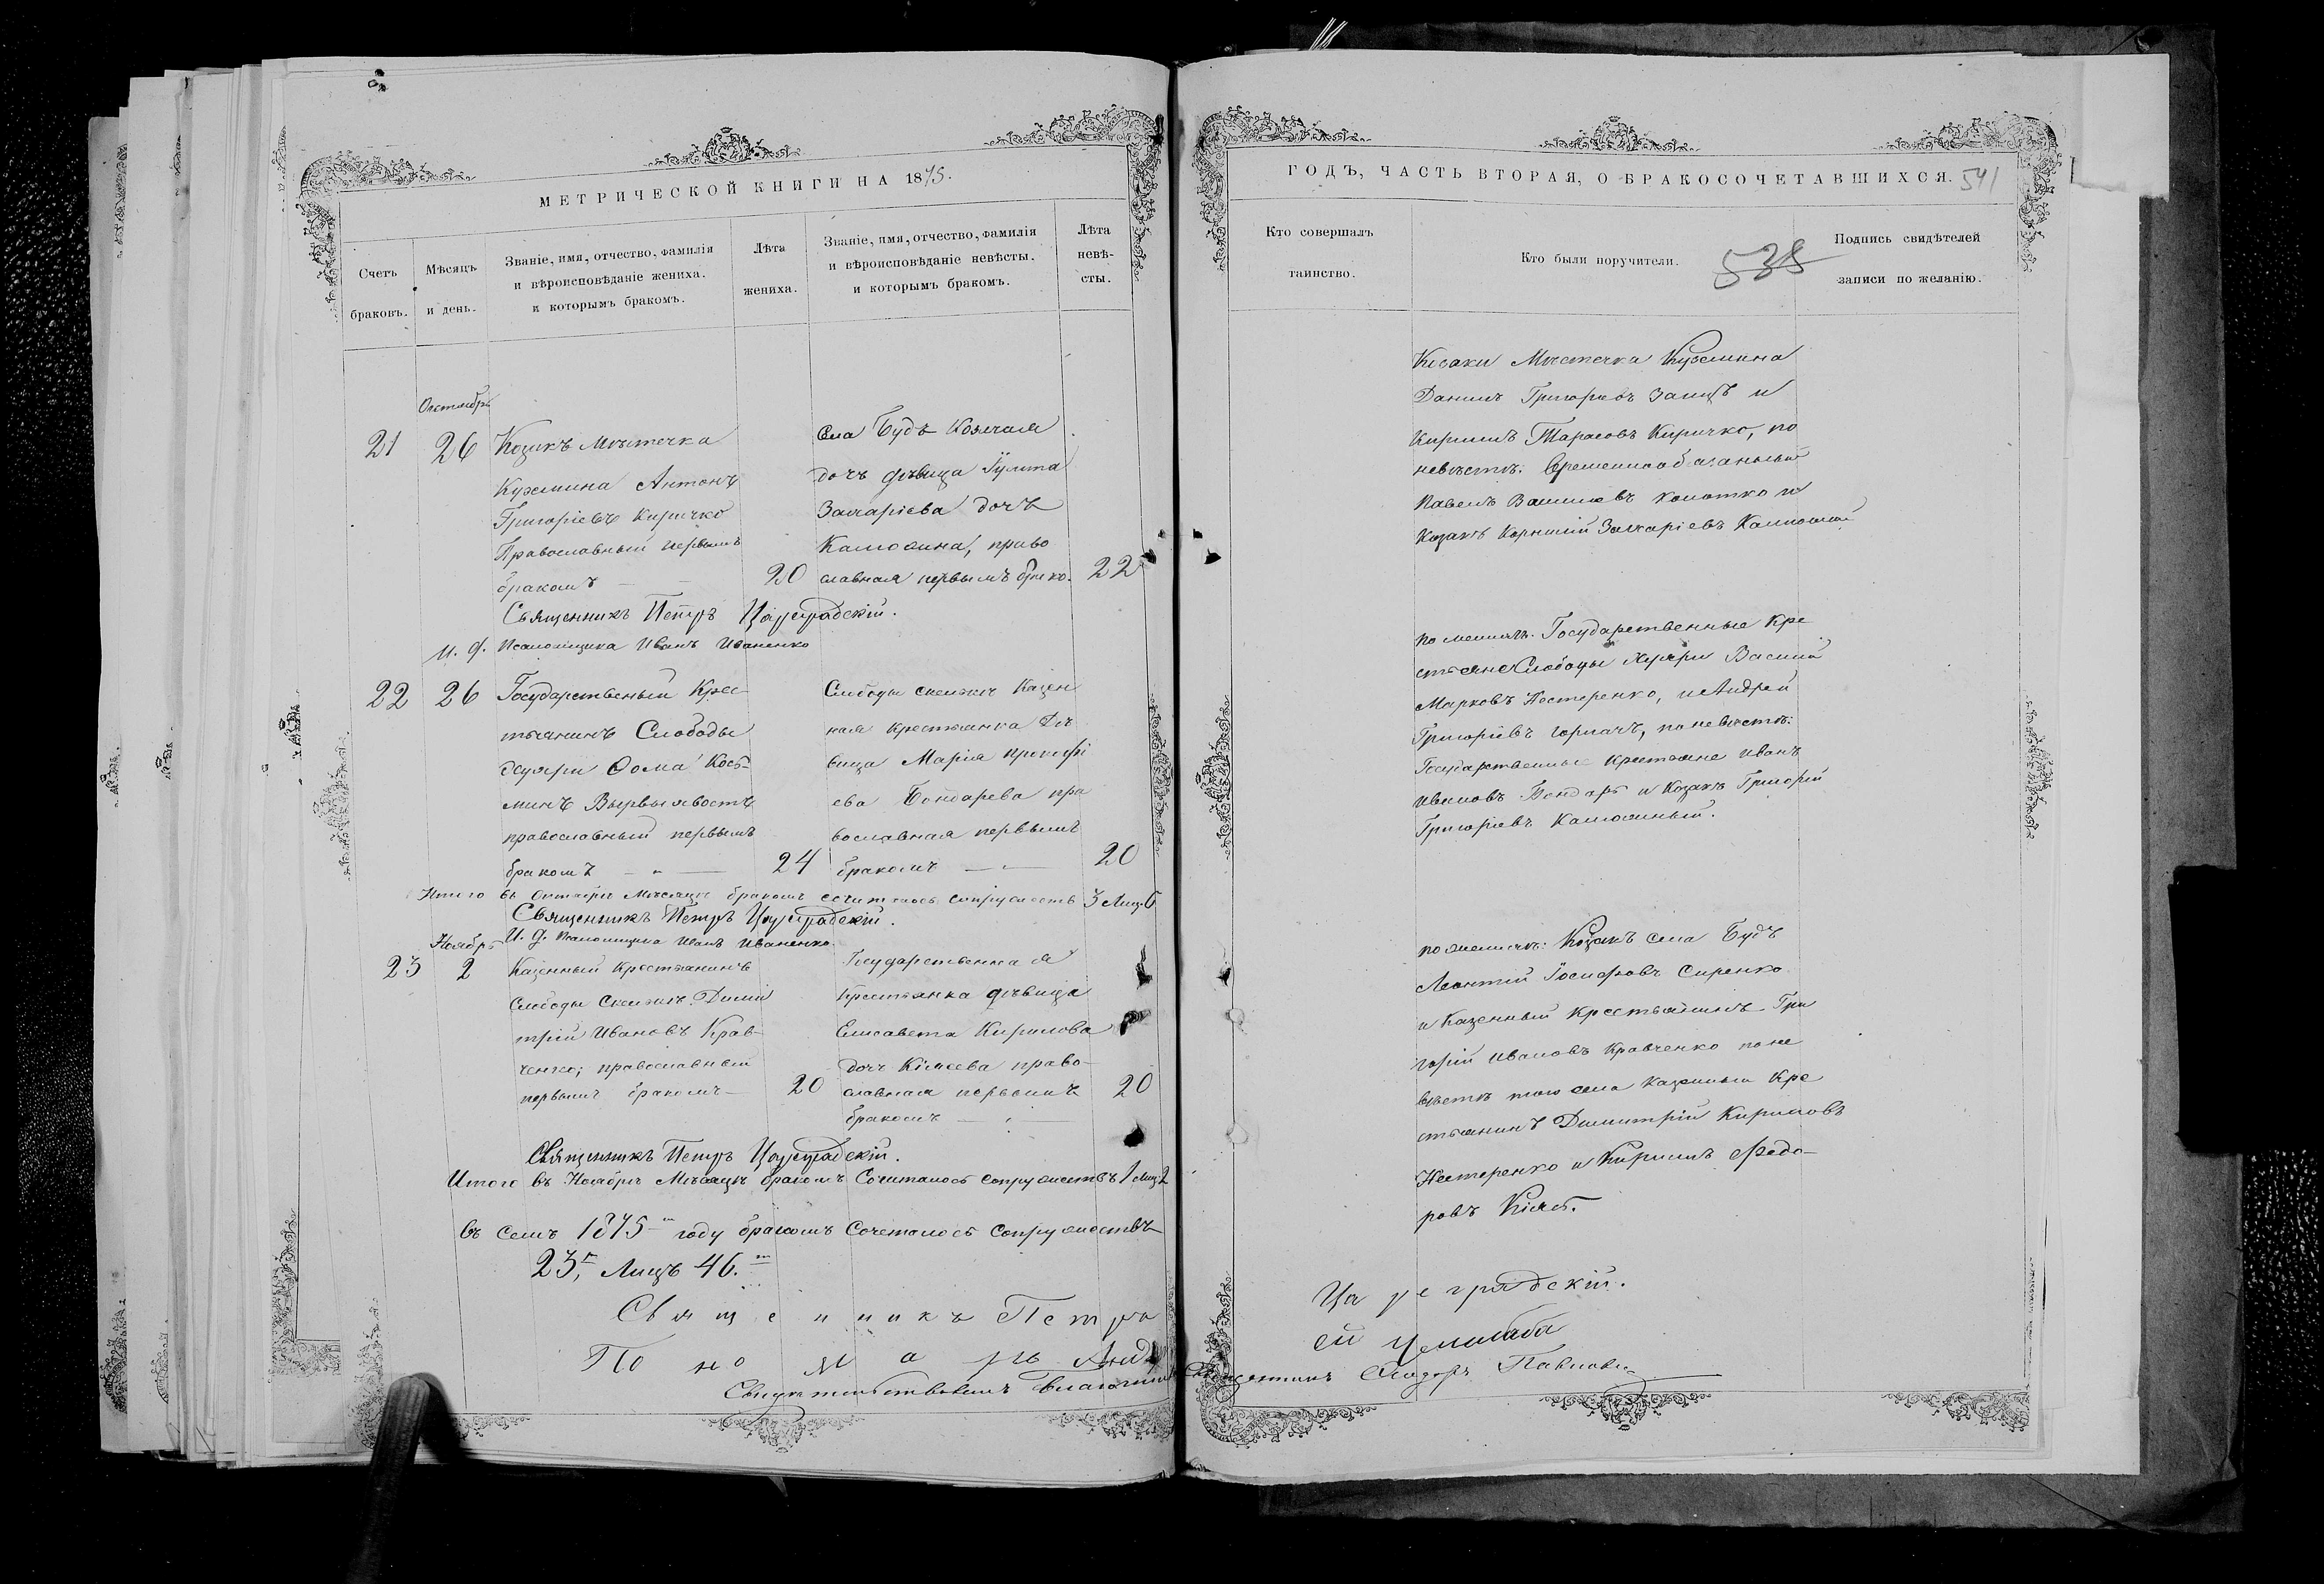 МЕТРИЧЕСКОЙ КНИГИ НА 1875.
Счетъ браковъ.
Мѣсяцъ и день.
Званіе, имя, отчество, фамилія
и вѣроисповѣданіе жениха.
и которымъ бракомъ.
Лѣта жениха.
Званіе, имя, отчество, фамилія
и вѣроисповѣданіе невѣсты.
и которымъ бракомъ.
Лѣта невѣ-
сты.
Октябрь
21 26
Козакъ Мѣстечка
Кузмина Антонъ
Григоріевъ Киричко
Православный первымъ
бракомъ 20
Села Будъ Козачая
дочь дѣвица
Захаріева дочь
право
славная первымъ брако. 22
Священникъ Петръ Цареградскій.
И. д. Псаломщика Иванъ Иваненко
22 26
Государственный Крес-
тьянинъ Слободы
Ѳома Кось-
минъ
православный первымъ
бракомъ 24
Слободы Казен
ная крестьянка Дѣ
вица Марія Прокофі
ева Бондарева пра
вославная первымъ
бракомъ 20
Итого въ Октябрѣ Мѣсяцѣ бракомъ сочиталось супружествъ 3 Лиц. 6
Священникъ Петръ Цареградскій.
И. д. Псаломщика Иванъ Иваненко
Ноябрь
23 2
Казенный Крестьянинъ
Слободы Дими
трій Ивановъ Крав-
ченко; православный
первымъ бракомъ 20
Государственная
Крестьянка дѣвица
Елисавета Кирилова
дочь право-
славная первымъ 20
бракомъ
Священникъ Петръ Цареградскій.
Итого въ Ноябрѣ Мѣсяцѣ бракомъ Сочиталось супружествъ 1 лиц. 2
Въ семъ 1875 году бракомъ Сочеталось Супружествъ
23, Лицъ 46.
Священникъ Петръ
Пономарь
ГОДЪ, ЧАСТЬ ВТОРАЯ, О БРАКОСОЧЕТАВШИХСЯ. 541
Кто совершалъ
таинство.
Кто были поручители. 538
Подпись свидѣтелей
записи по желанію.
Козаки Мѣстечка Кузмина
Данилъ Григорьевъ Заицъ и
Кирилъ Тарасовъ Киричко, по
невѣстѣ: Временнообязанный
Павелъ и
Козакъ Корнилій Захаріевъ
по женихѣ: Государственные Кре
стьяне Слободы Василій
Марковъ Нестеренко, и Андрей
Григоріевъ по невѣстѣ:
Государственные крестьяне Иванъ
Ивановъ Бондарь и Козакъ Григорій
Григоріевъ
по женихѣ: Козакъ села Будъ
Леонтій Іосифовъ Сиренко
и Казенный крестьянинъ Гри
горій Ивановъ Кравченко по не
вѣстѣ того села Казенный Кре
стьянинъ Димитрій Кириловъ
Нестеренко и Кирилъ Федо-
ровъ
Цареградскій.